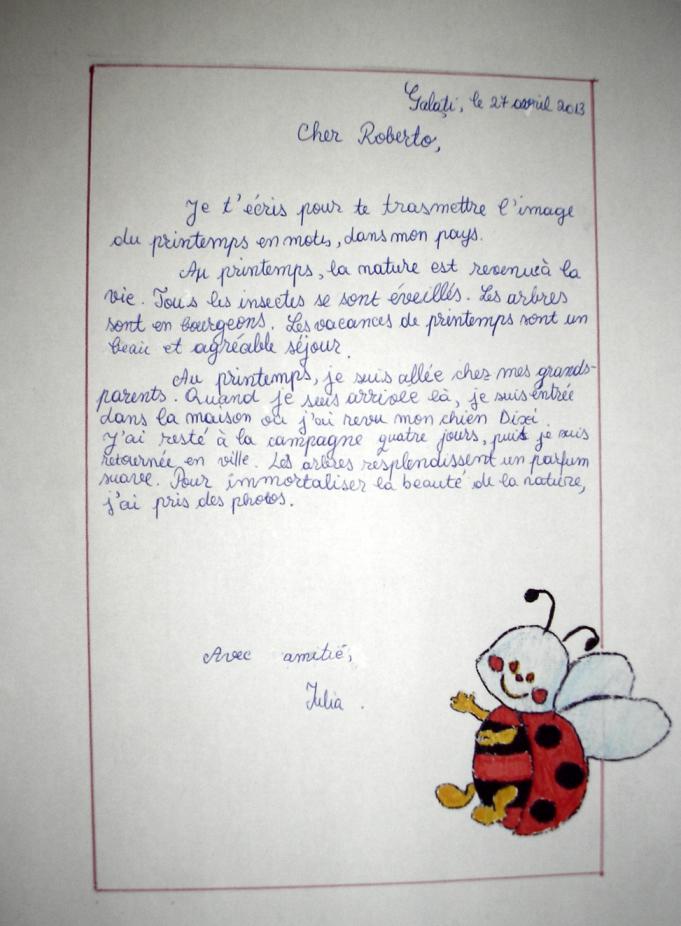 Galați, le 27 avril 2013
Cher Roberto,
Je t'écris pour te trasmettre l'image
du printemps en mots, dans mon pays.
Au printemps, la nature est revenue à la
vie. Tous les insectes se sont éveillés. Les arbres
sont en bourgeons. Les vacances de printemps sont un
beau et agréable séjour.
Au printemps, je suis allée chez mes grands-
parents. Quand je suis arrivée là, je suis entrée
dans la maison où j'ai revu mon chien Dixi.
J'ai resté à la campagne quatre jours, puis je suis
retournée en ville. Les arbres resplendissent un parfum
suave. Pour immortaliser la beauté de la nature,
j'ai pris des photos.
Avec amitié,
Iulia.